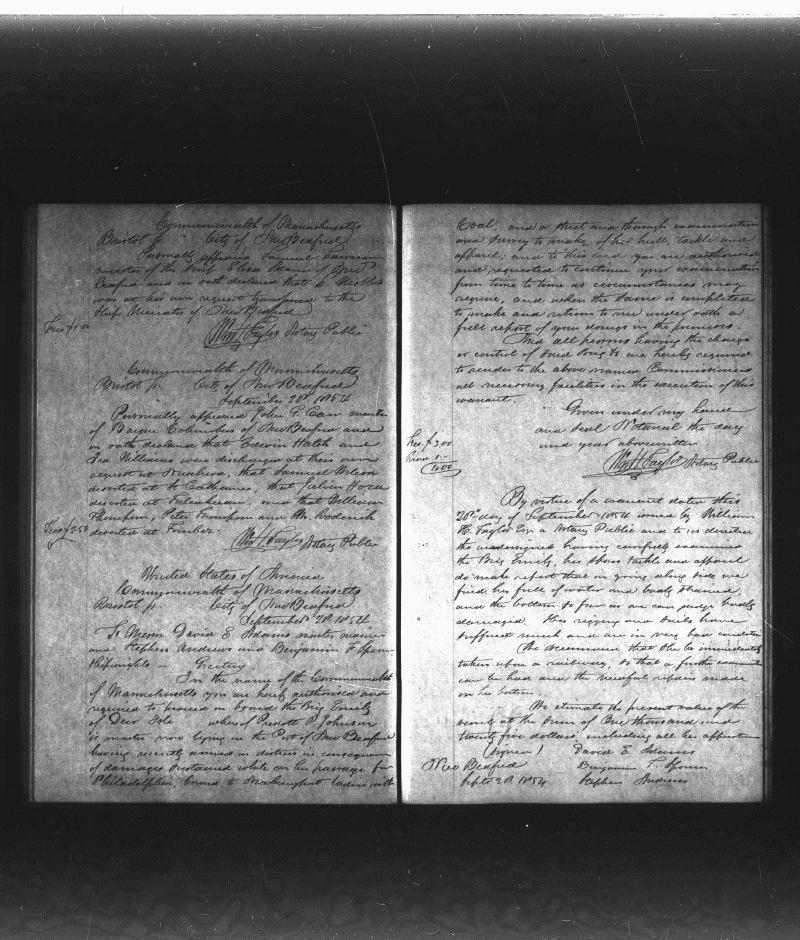 Commonwealth of Massachusetts
Bristol ss. City of New Bedford
Personally appeared Samuel
master of the Ship Eliza Adams of New
Bedford and on oath declared that
was at his own request transferred to the
Ship of New Bedford
Fees $1.00
Wm H Taylor Notary Public
Commonwealth of Massachusetts
Bristol ss. City of New Bedford
September 20th 1854
Personally appeared John G. master
of Barque Columbus of New Bedford and
on oath declared that Edwin Hatch and
Ira Williams were discharged at their own
request at that Samuel Wilson
deserted at St Catharines, that Julian
deserted at Talcahuano and that William
Thompson, Peter Thompson and Wm Broderick
deserted at Tumbez.
Fees $2.50
Wm H Taylor Notary Public
United States of America
Commonwealth of Massachusetts
Bristol ss. City of New Bedford
September 20. 1854
To Messrs David E. Adams master mariner
and Stephen Andrews and Benjamin F
Shipwrights Greeting
In the name of the Commonwealth
of Massachusetts you are hereby authorised and
required to proceed on board the Brig Emily
of Deer Isle whereof Prescott P Johnson
is master now lying in the Port of New Bedford
having recently arrived in distress in consequence
of damages sustained while on her passage from
Philadelphia, bound to Newburyport laden with
Coal, and a strict and thorough examination
and survey to make, of her hull, tackle and
apparel, and to this end you are authorised
and requested to continue your examination
from time to time as circumstances may
require, and when the same is completed
to make and return to me under oath a
full report of your doings in the premises.
And all persons having the charge
or control of said Brig &c are hereby required
to accede to the above named Commissioners
all necessary facilities in the execution of this
warrant.
Given under my hand
and Seal Notarial the day
and year abovewritten
Fees. $3.00
Wm H Taylor Notary Public
By virtue of a warrant dated this
20th day of September 1854 issued by William
H. Taylor Esq a Notary Public and to us directed
the undersigned having carefully examined
the Brig Emily, her Spars tackle and apparel
do make report that on going along side we
find her full of water and badly strained,
and the bottom so far as we can judge badly
damaged. Her rigging and sails have
suffered much and are in very bad condition
We recommend that she be immediately
taken upon a railway, so that a further examination
can be had and the needful repairs made
on her bottom.
We estimate the present value of the
vessel at the sum of One thousand and
twenty five dollars including all her appurtenances
(signed) David E. Adams
New Bedford Benjamin F.
Septr 20. 1854 Stephen Andrews